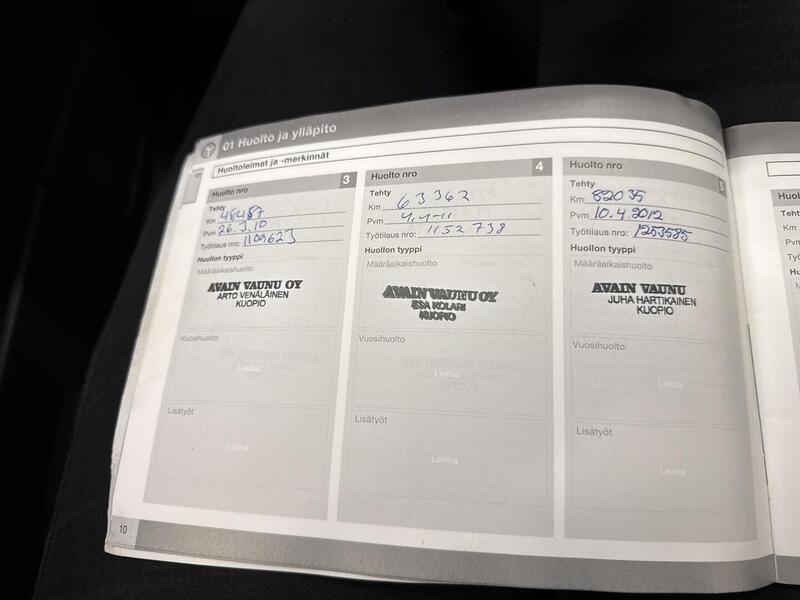 01 Huolto ja ylläpito
Huoltoleimat ja -merkinnät
Huolto nro 3
Tehty
Km 48487
Pvm 26.3.10
Työtilaus nro: 1109623
Huollon tyyppi
Määräaikaishuolto
AVAIN VAUNU OY
ARTO VENÄLÄINEN
KUOPIO
Vuosihuolto
Leima
Lisätyöt
Leima
Huolto nro 4
Tehty
Km 63362
Pvm 4.4-11
Työtilaus nro: 1152738
Huollon tyyppi
Määräaikaishuolto
AVAIN VAUNU OY
ESA KOLARI
KUOPIO
Vuosihuolto
Leima
Lisätyöt
Leima
Huolto nro 5
Tehty
Km 82035
Pvm 10.4.2012
Työtilaus nro: 1253585
Huollon tyyppi
Määräaikaishuolto
AVAIN VAUNU
JUHA HARTIKAINEN
KUOPIO
Vuosihuolto
Leima
Lisätyöt
Leima
10
Km
Pvm